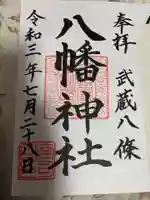 奉拝
武蔵八條
八幡神社
令和三年七月二十八日